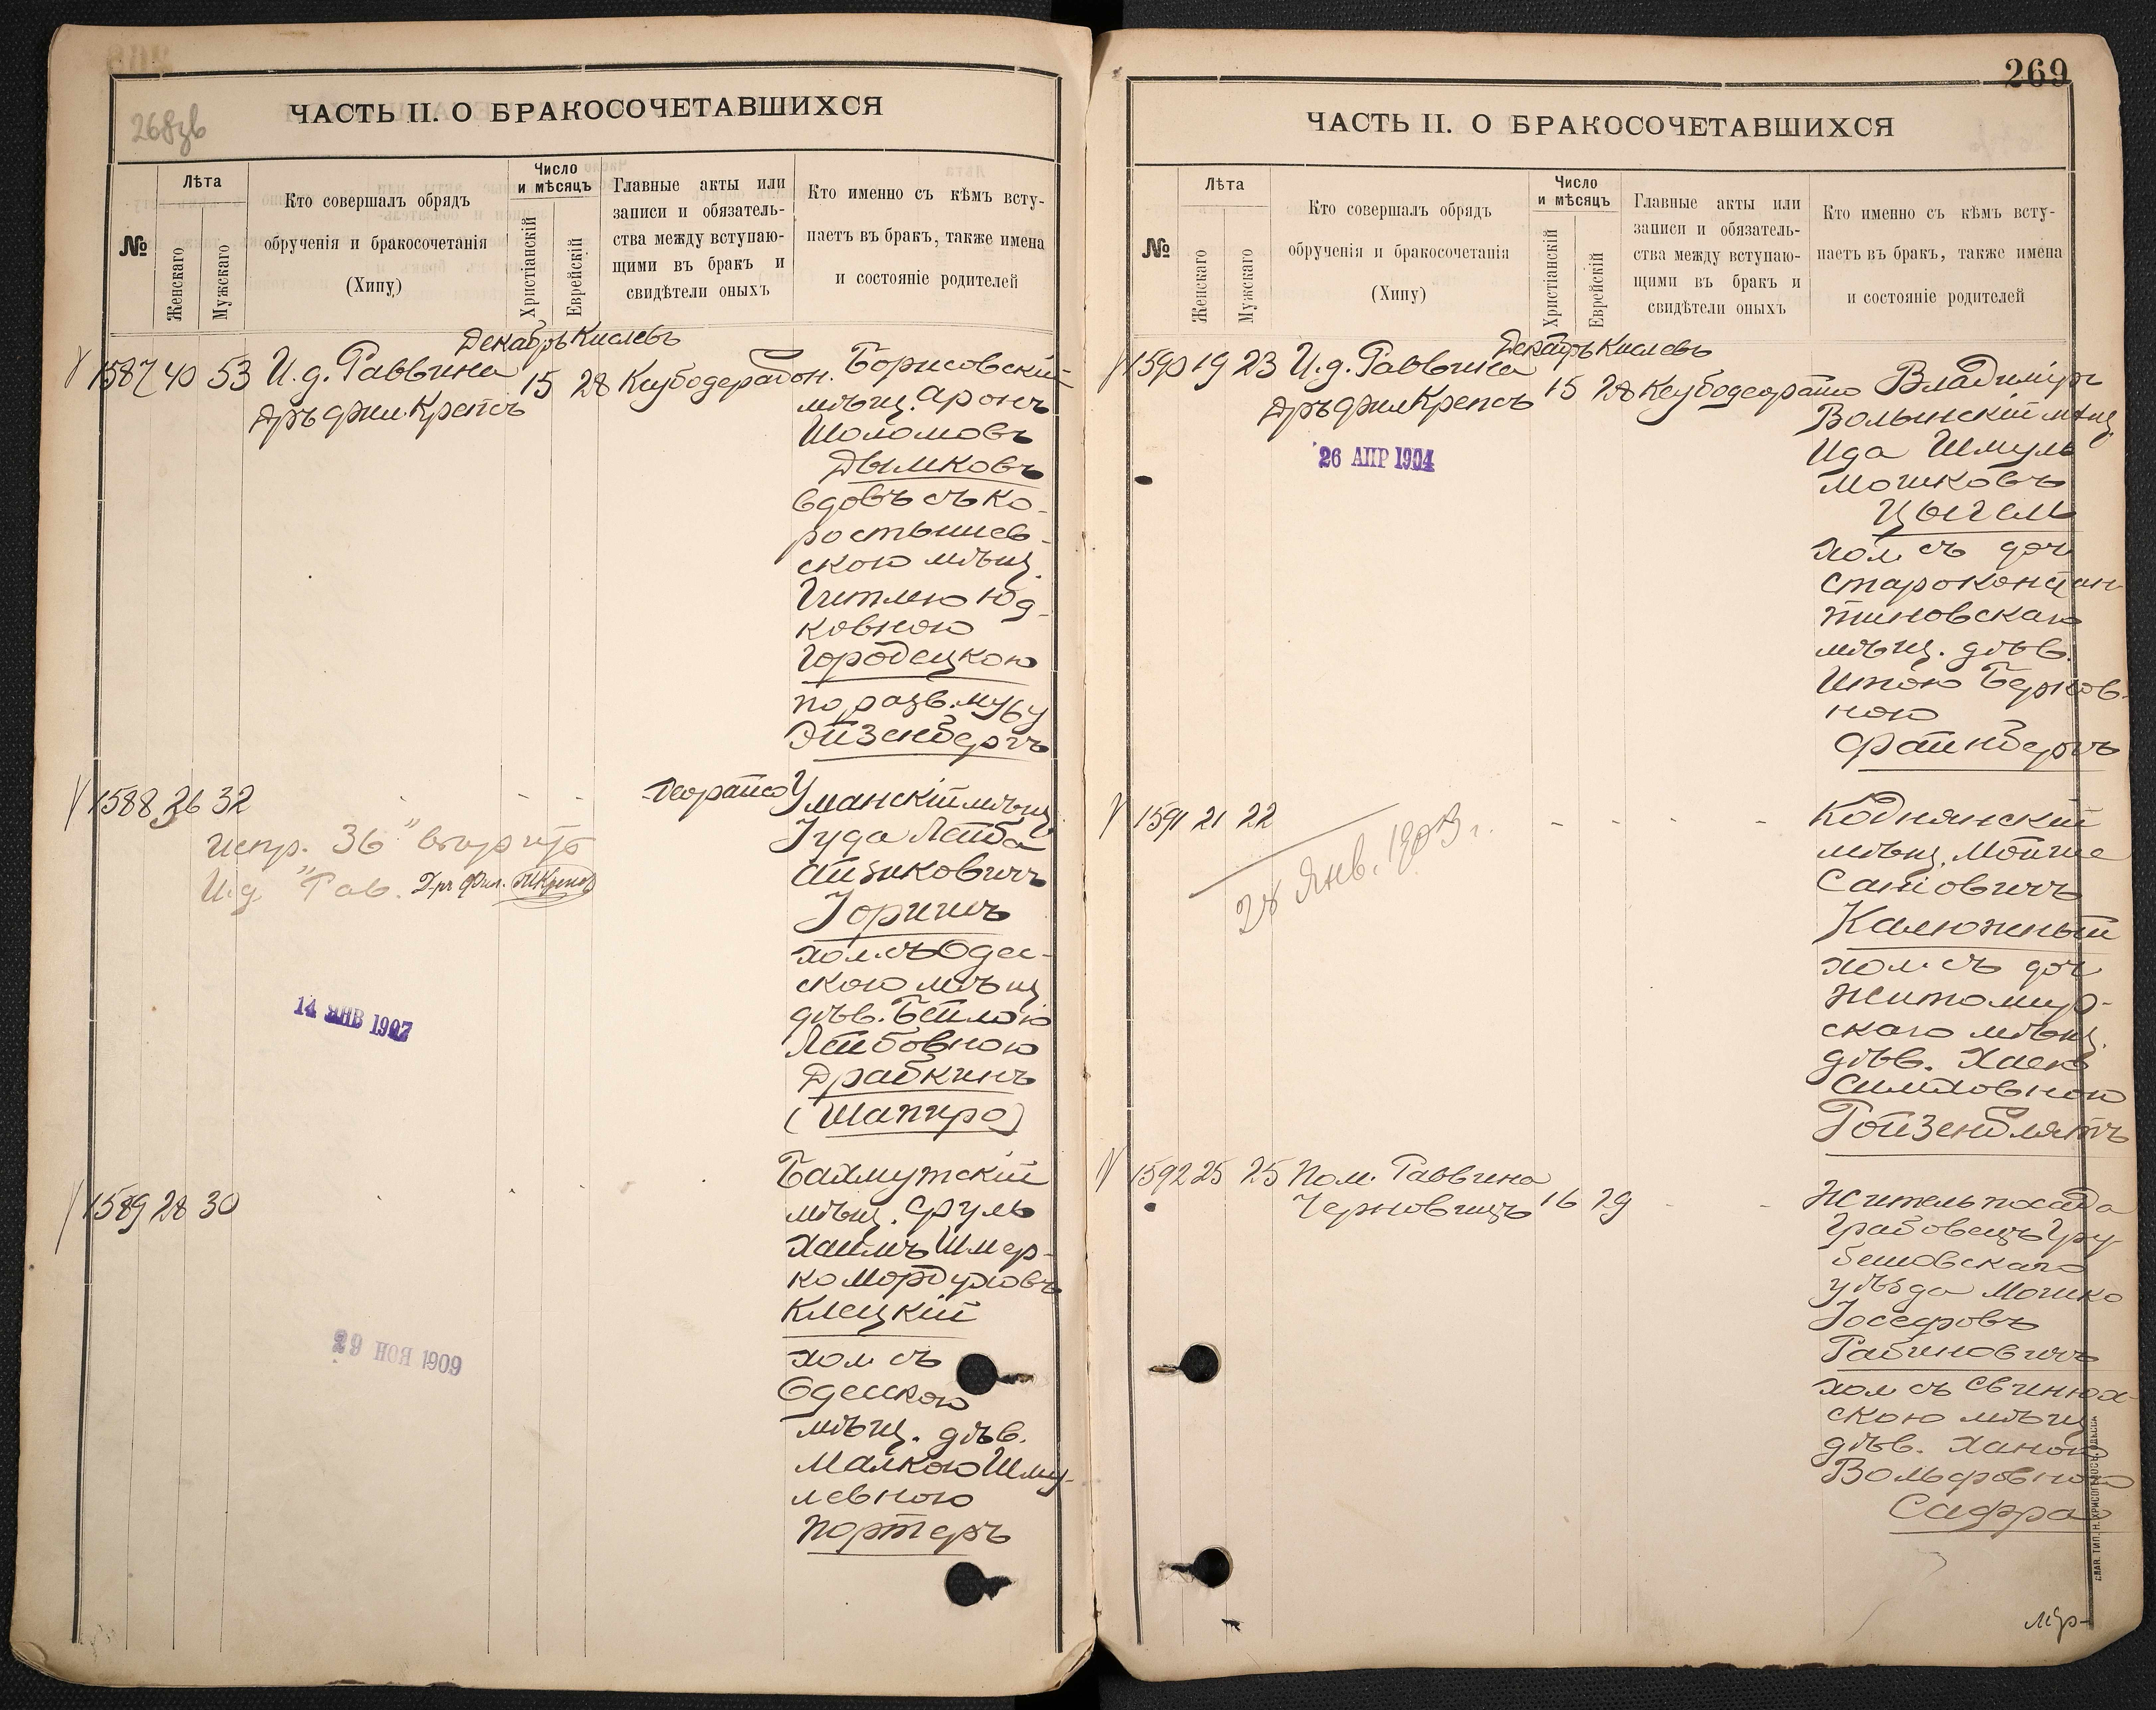 268зв
ЧАСТЬ II. О БРАКОСОЧЕТАВШИХСЯ
№
Лѣта
Женскаго
Мужскаго
Кто совершалъ обрядъ
обрученія и бракосочетанія
(Хипу)
Число
и мѣсяцъ
Христіанскій
Еврейскій
Главные акты или
записи и обязатель-
ства между вступаю-
щими въ бракъ и
свидѣтели оныхъ
Кто именно съ кѣмъ всту-
паетъ въ бракъ, также имена
и состояніе родителей
Декабрь Кислевъ
1587 40 53 И.д. Раввина 15 28
Дръ фил. Крепсъ
Борисовскій
мѣщ. Аронъ
Шоломовъ
Дымковъ
вдовъ съ Ко-
ростышев-
скою мѣщ.
Гитлею Юд-
ковною
Городецкою
по разв. мужу
Эйзенбергъ
1588 26 32
Испр. "36" вѣрить
И.д. Рав. Д-ръ Фил. Крепсъ
14 ЯНВ 1907
Уманскій мѣщ.
Іуда Лейба
Айзиковичъ
Горишъ
хол. съ Одес-
скою мѣщ.
дѣв. Бейлою
Лейбовною
Драбкинъ
(Шапиро)
1589 28 30
29 НОЯ 1909
Бахмутскій
мѣщ. Сруль
Хаимъ Шмер-
ко Мордуховъ
Клецкій
хол съ
Одесскою
мѣщ. дѣв.
Малкою Шму-
левною
Портеръ
269
ЧАСТЬ II. О БРАКОСОЧЕТАВШИХСЯ
№
Лѣта
Женскаго
Мужскаго
Кто совершалъ обрядъ
обрученія и бракосочетанія
(Хипу)
Число
и мѣсяцъ
Христіанскій
Еврейскій
Главные акты или
записи и обязатель-
ства между вступаю-
щими въ бракъ и
свидѣтели оныхъ
Кто именно съ кѣмъ всту-
паетъ въ бракъ, также имена
и состояніе родителей
Декабрь Кислевъ
1590 19 23 И.д. Раввина 15 28
Дръ фил Крепсъ
26 АПР 1904
Владиміръ
Волынскій мѣщ.
Ида Шмуль
Мошковъ
Цыгель
хол. съ доч
Староконстан-
тиновскаго
мѣщ. дѣв.
Итою Берков-
ною
Файнбергъ
1591 21 22
28 Янв. 1903 г.
Коднянскій
мѣщ. Мойше
Калюжный
хол. съ доч
Житомир-
скаго мѣщ.
дѣв. Хаею
Симховною
Ройзенблятъ
1592 25 25 Пом. Раввина
Черновицъ 16 29
Житель посада
Грабовецъ Гру-
бешовскаго
уѣзда Мошко
Іосефовъ
Рабиновичъ
хол съ Свинюх-
скою мѣщ
дѣв. Ханою
Вольфовною
Сафра
СЛАВ. ТИП. Н. ХРИСОГЕЛОСЪ, ОДЕССА